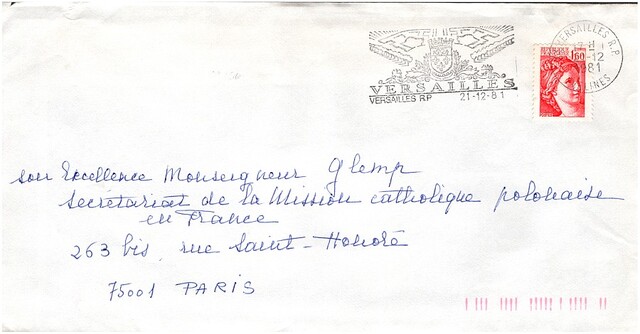 VERSAILLES
VERSAILLES RP 21-12-81
VERSAILLES R.P.
1,60
Son Excellence Monseigneur Glemp
Secrétariat de la Mission catholique polonaise
en France
263 bis, rue Saint-Honoré
75001 PARIS